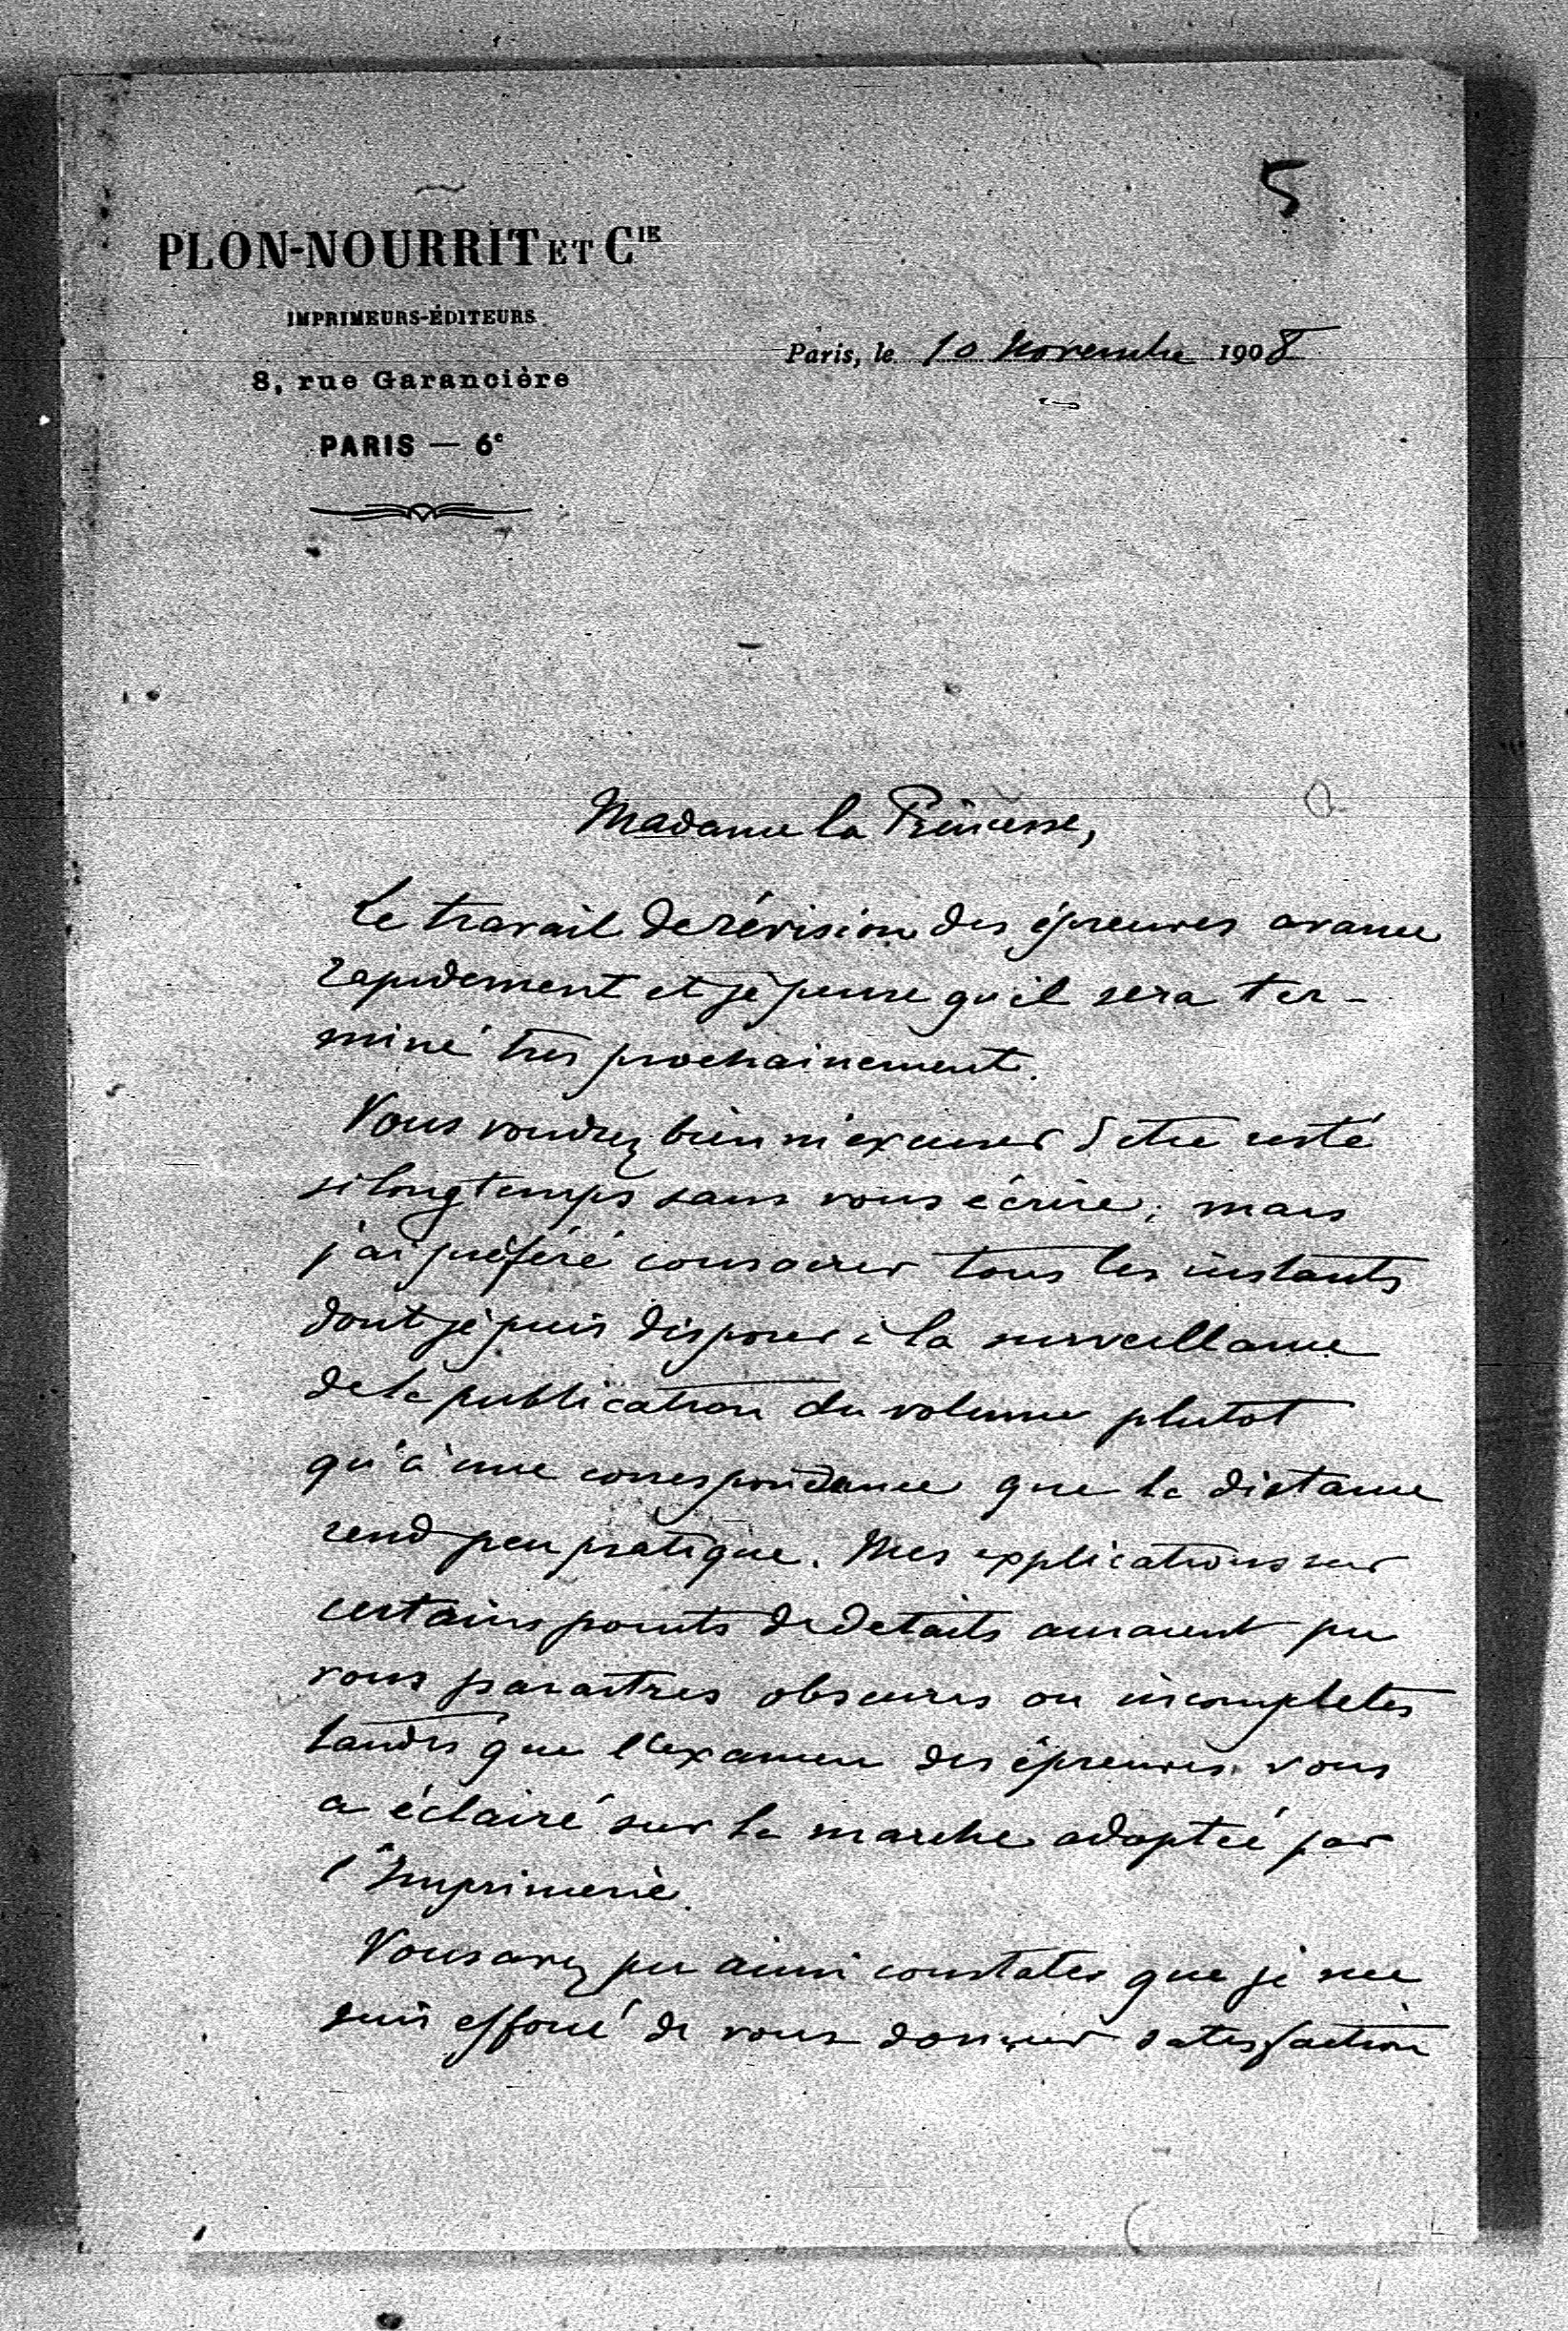 5
PLON-NOURRIT ET Cie
IMPRIMEURS-ÉDITEURS
8, rue Garancière
PARIS — 6e
Paris, le 10 Novembre 1908
Madame la Princesse,
Le travail de révision des épreuves avance
rapidement et je pense qu'il sera ter-
miné très prochainement.
Vous voudrez bien m'excuser d'être resté
si longtemps sans vous écrire; mais
j'ai préféré consacrer tous les instants
dont je puis disposer à la surveillance
de la publication du volume plutot
qu'à une correspondance que la distance
rend peu pratique. Mes explications sur
certains points de détails auraient pu
vous paraitres obscures ou incomplètes
tandis que l'examen des épreuves vous
a éclairé sur la marche adoptée par
l'Imprimerie.
Vous avez pu ainsi constater que je me
suis efforcé de vous donner satisfaction